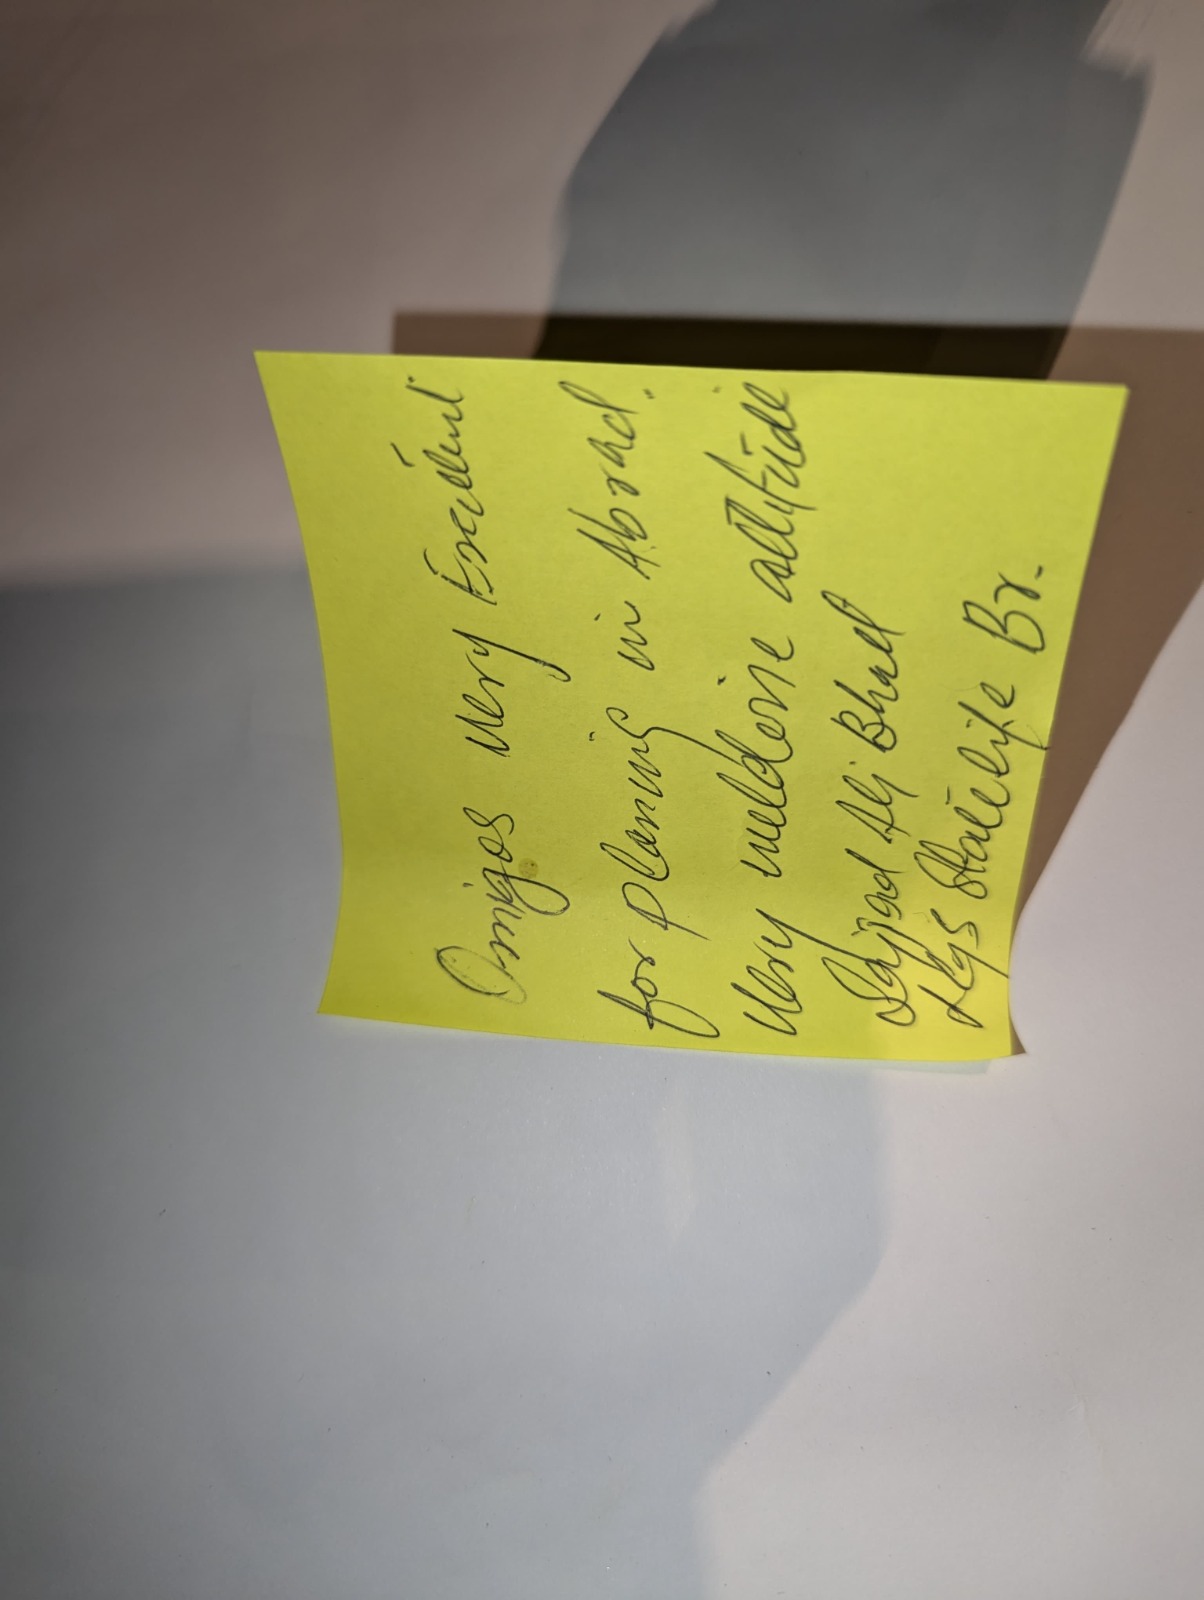 Omigos very Excelent
for planing in Abrod.
very welldone attitude
Sajjad Ali Bhatt
Statelife Br.